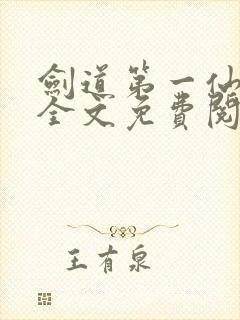 劍道第一仙
全文免費閱
王有泉